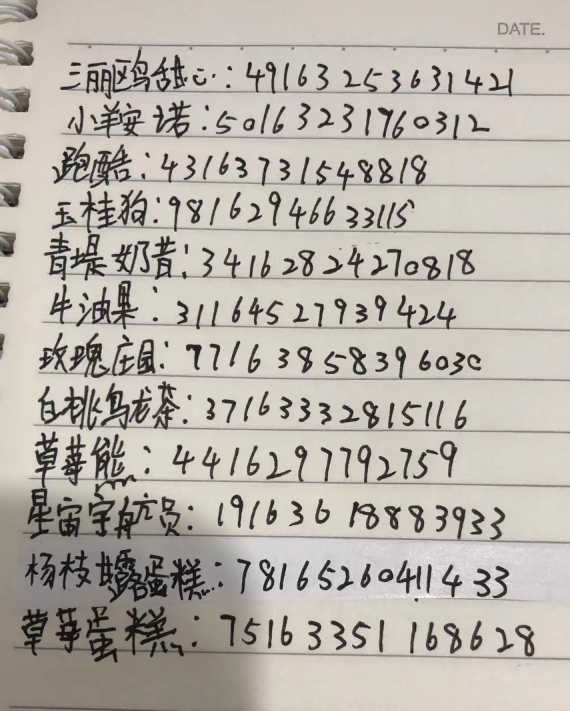 DATE.
三丽鸥甜心: 49163253631421
小羊安诺: 50163231760312
跑酷: 43163731548818
玉桂狗: 98162946633115
青堤奶昔: 34162824270818
牛油果: 31164527939424
玫瑰庄园: 77163858396030
白桃乌龙茶: 37163332815116
草莓熊: 4416297792759
星宙宇航员: 19163618883933
杨枝甘露蛋糕: 78165260411433
草莓蛋糕: 75163351168628